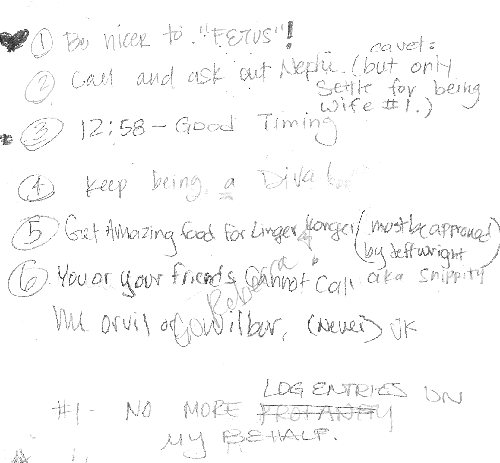 ① Be nicer to "FETUS"!
② Call and ask out Nephi. (cavet: but only settle for being wife #1.)
③ 12:58 - Good Timing
④ Keep being a Diva!
⑤ Get Amazing food for Linger Longer (must be approved by Jeff Wright aka Snippity
⑥ You or your friends cannot call
me orvil or Wilbur, (Never) JK
Rebecca
#1 - NO MORE PROFANITY LOG ENTRIES ON
MY BEHALF.